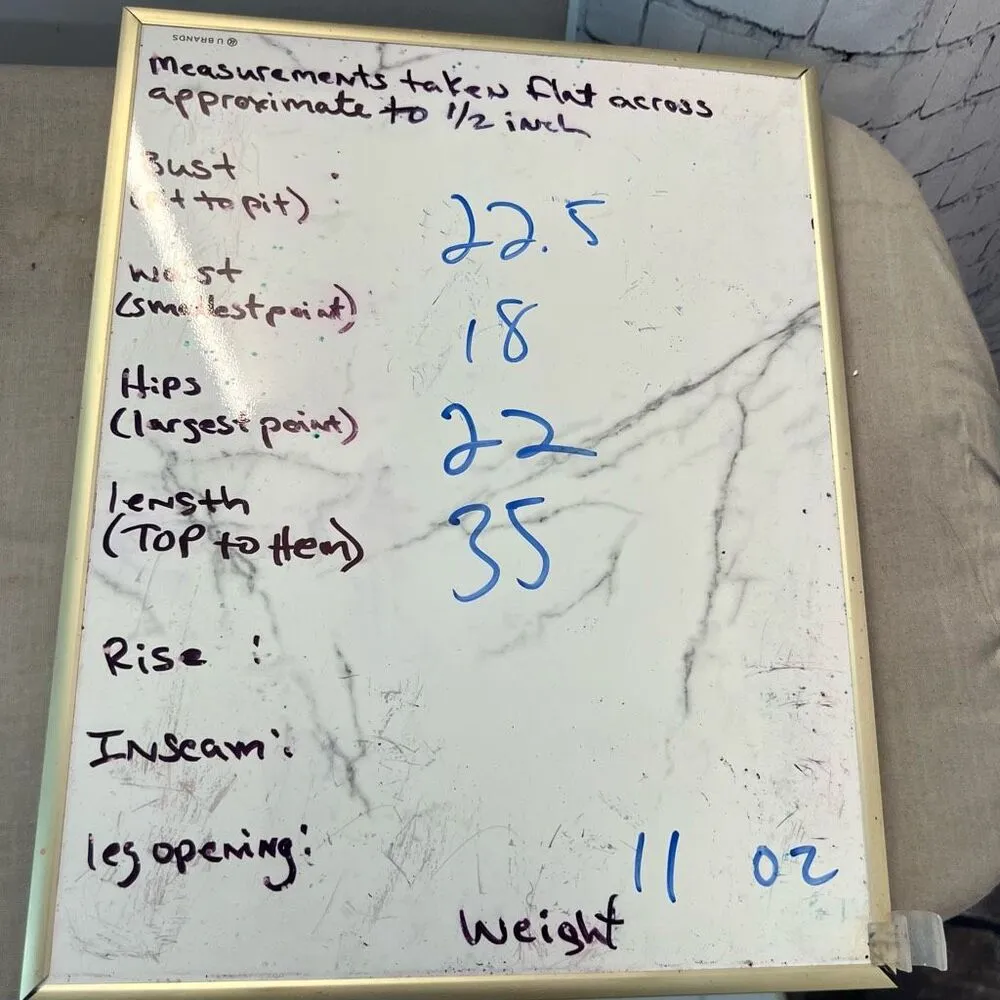 U BRANDS
Measurements taken flat across
approximate to 1/2 inch
Bust :
to pit)
22.5
(smallest point)
18
Hips
(largest point)
22
length
(TOP to Hem)
35
Rise :
Inseam :
leg opening :
11 oz
Weight